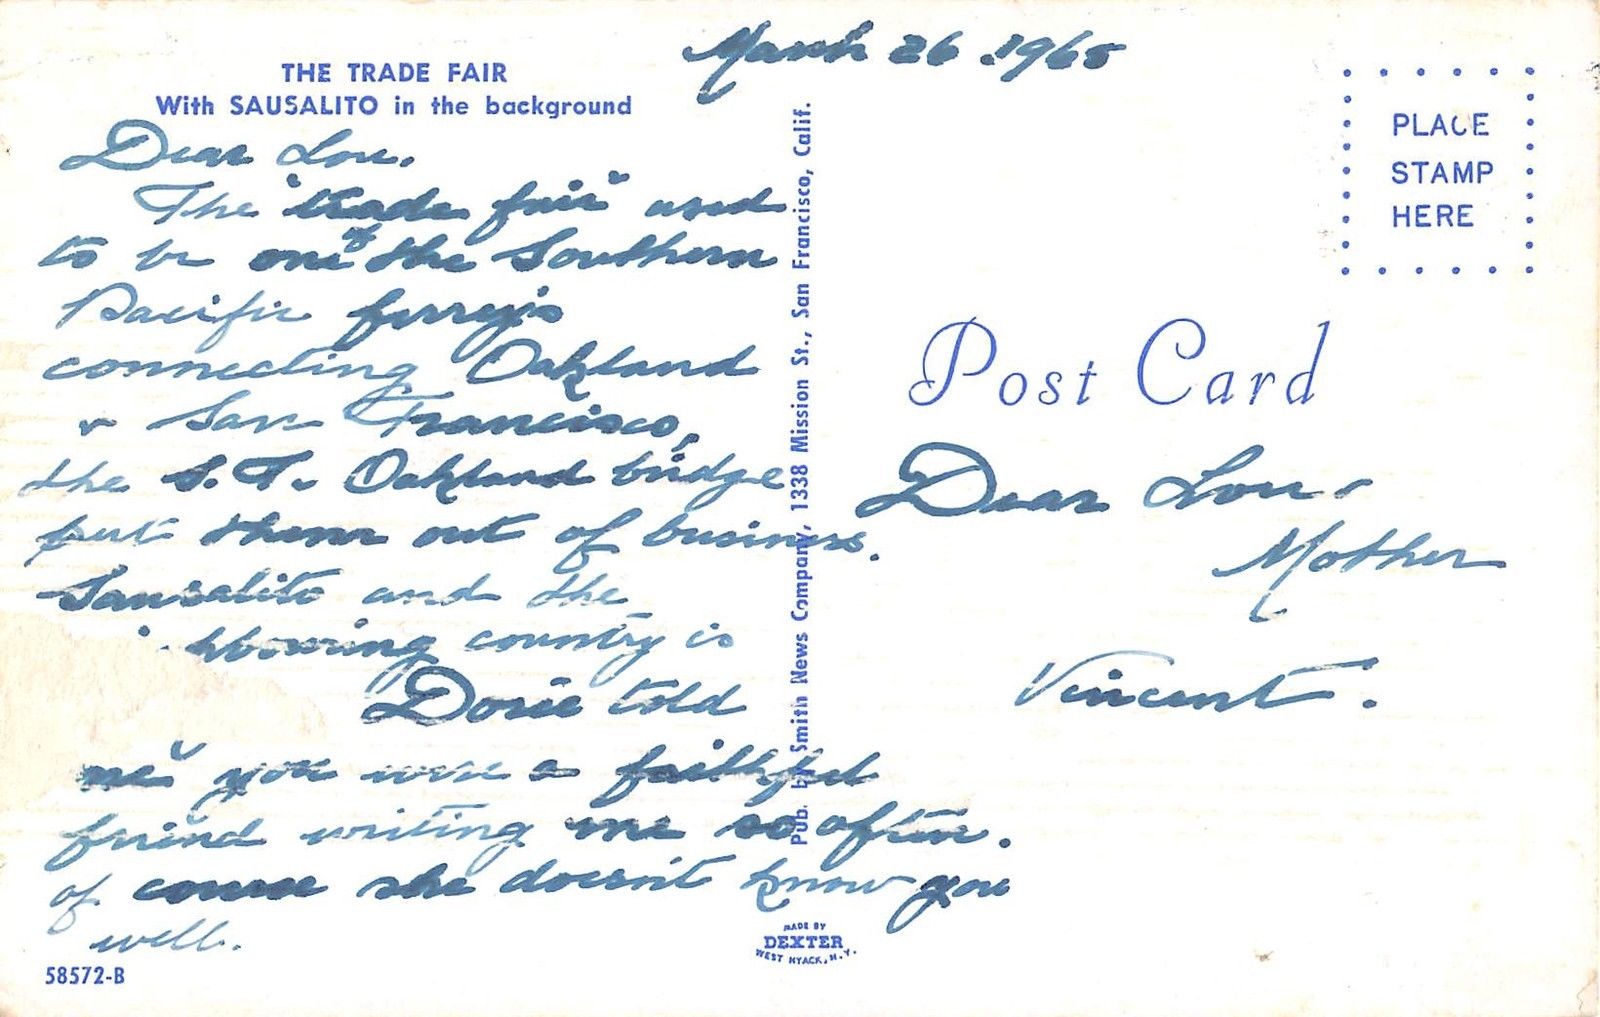 March 26. 1965
THE TRADE FAIR
With SAUSALITO in the background
Dear Lou.
The "trade fair" used
to be one of the Southern
Pacific ferrys
connecting Oakland
& San Francisco,
the S.F. Oakland bridge
put them out of business.
Sausalito and the
country is
Dosie told
me you were a faithful
friend writing me so often.
of course she doesn't know you
well.
58572-B
Pub. by Smith News Company, 1338 Mission St., San Francisco, Calif.
MADE BY
DEXTER
WEST NYACK, N.Y.
PLACE
STAMP
HERE
Post Card
Dear Lou.
Mother
Vincent.